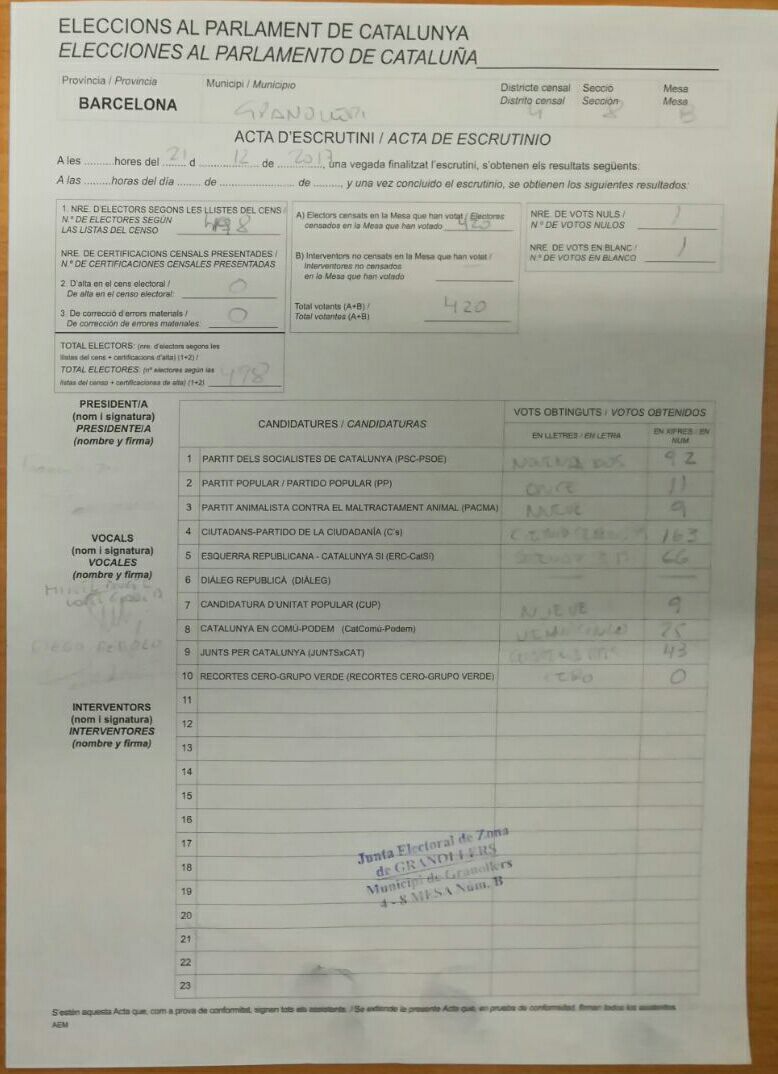 ELECCIONS AL PARLAMENT DE CATALUNYA
ELECCIONES AL PARLAMENTO DE CATALUÑA
Província / Provincia Municipi / Municipio Districte censal Secció Mesa
Distrito censal Sección Mesa
BARCELONA GRANOLLERS 4 8 B
ACTA D'ESCRUTINI / ACTA DE ESCRUTINIO
A les .........hores del 21 d 12 de 2017, una vegada finalitzat l'escrutini, s'obtenen els resultats següents:
A las .........horas del día ....... de ........................ de ........, y una vez concluido el escrutinio, se obtienen los siguientes resultados:
1. NRE. D'ELECTORS SEGONS LES LLISTES DEL CENS /
N.º DE ELECTORES SEGÚN
LAS LISTAS DEL CENSO 498
NRE. DE CERTIFICACIONS CENSALS PRESENTADES /
N.º DE CERTIFICACIONES CENSALES PRESENTADAS
2. D'alta en el cens electoral /
De alta en el censo electoral: 0
3. De correcció d'errors materials /
De corrección de errores materiales: 0
TOTAL ELECTORS: (nre. d'electors segons les
llistes del cens + certificacions d'alta) (1+2) /
TOTAL ELECTORES: (nº electores según las
listas del censo + certificaciones de alta) (1+2) 498
A) Electors censats en la Mesa que han votat / Electores
censados en la Mesa que han votado 420
B) Interventors no censats en la Mesa que han votat /
Interventores no censados
en la Mesa que han votado
Total votants (A+B) /
Total votantes (A+B) 420
NRE. DE VOTS NULS /
N.º DE VOTOS NULOS 1
NRE. DE VOTS EN BLANC /
N.º DE VOTOS EN BLANCO 1
PRESIDENT/A
(nom i signatura)
PRESIDENTE/A
(nombre y firma)
VOCALS
(nom i signatura)
VOCALES
(nombre y firma)
DIEGO
INTERVENTORS
(nom i signatura)
INTERVENTORES
(nombre y firma)
CANDIDATURES / CANDIDATURAS VOTS OBTINGUTS / VOTOS OBTENIDOS
EN LLETRES / EN LETRA EN XIFRES / EN NUM
1 PARTIT DELS SOCIALISTES DE CATALUNYA (PSC-PSOE) NOVENTA DOS 92
2 PARTIT POPULAR / PARTIDO POPULAR (PP) ONCE 11
3 PARTIT ANIMALISTA CONTRA EL MALTRACTAMENT ANIMAL (PACMA) NUEVE 9
4 CIUTADANS-PARTIDO DE LA CIUDADANÍA (C's) 163
5 ESQUERRA REPUBLICANA - CATALUNYA SI (ERC-CatSí) 66
6 DIÀLEG REPUBLICÀ (DIÀLEG)
7 CANDIDATURA D'UNITAT POPULAR (CUP) NUEVE 9
8 CATALUNYA EN COMÚ-PODEM (CatComú-Podem) 25
9 JUNTS PER CATALUNYA (JUNTSxCAT) 43
10 RECORTES CERO-GRUPO VERDE (RECORTES CERO-GRUPO VERDE) CERO 0
11
12
13
14
15
16
17
18
19
20
21
22
23
Junta Electoral de Zona
de GRANOLLERS
Municipi de Granollers
4 - 8 MESA Núm. B
S'estén aquesta Acta que, com a prova de conformitat, signen tots els assistents. / Se extiende la presente Acta que, en prueba de conformidad, firman todos los asistentes.
AEM